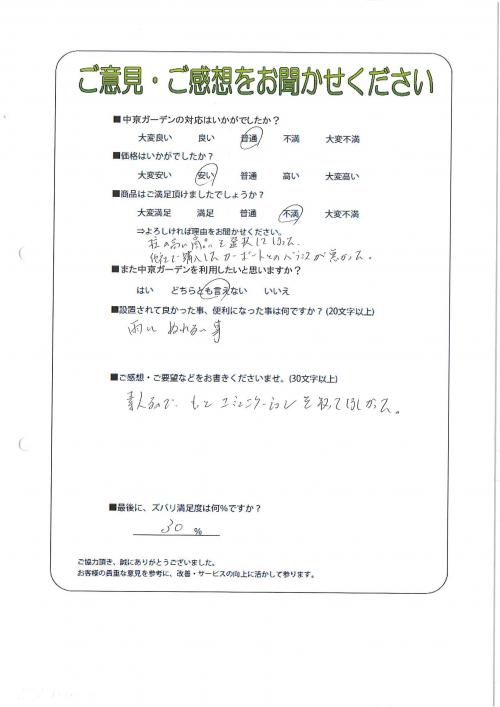 ご意見・ご感想をお聞かせください
■中京ガーデンの対応はいかがでしたか?
大変良い 良い 普通 不満 大変不満
■価格はいかがでしたか?
大変安い 安い 普通 高い 大変高い
■商品はご満足頂けましたでしょうか?
大変満足 満足 普通 不満 大変不満
⇒よろしければ理由をお聞かせください。
柱の高い商品を選択してしまった。
他社で購入したカーポートとのバランスが悪かった。
■また中京ガーデンを利用したいと思いますか?
はい どちらとも言えない いいえ
■設置されて良かった事、便利になった事は何ですか?(20文字以上)
雨にぬれない事
■ご感想・ご要望などをお書きくださいませ。(30文字以上)
素人なので、もっとコミュニケーションを取ってほしかった。
■最後に、ズバリ満足度は何%ですか?
30 %
ご協力頂き、誠にありがとうございました。
お客様の貴重な意見を参考に、改善・サービスの向上に活かして参ります。